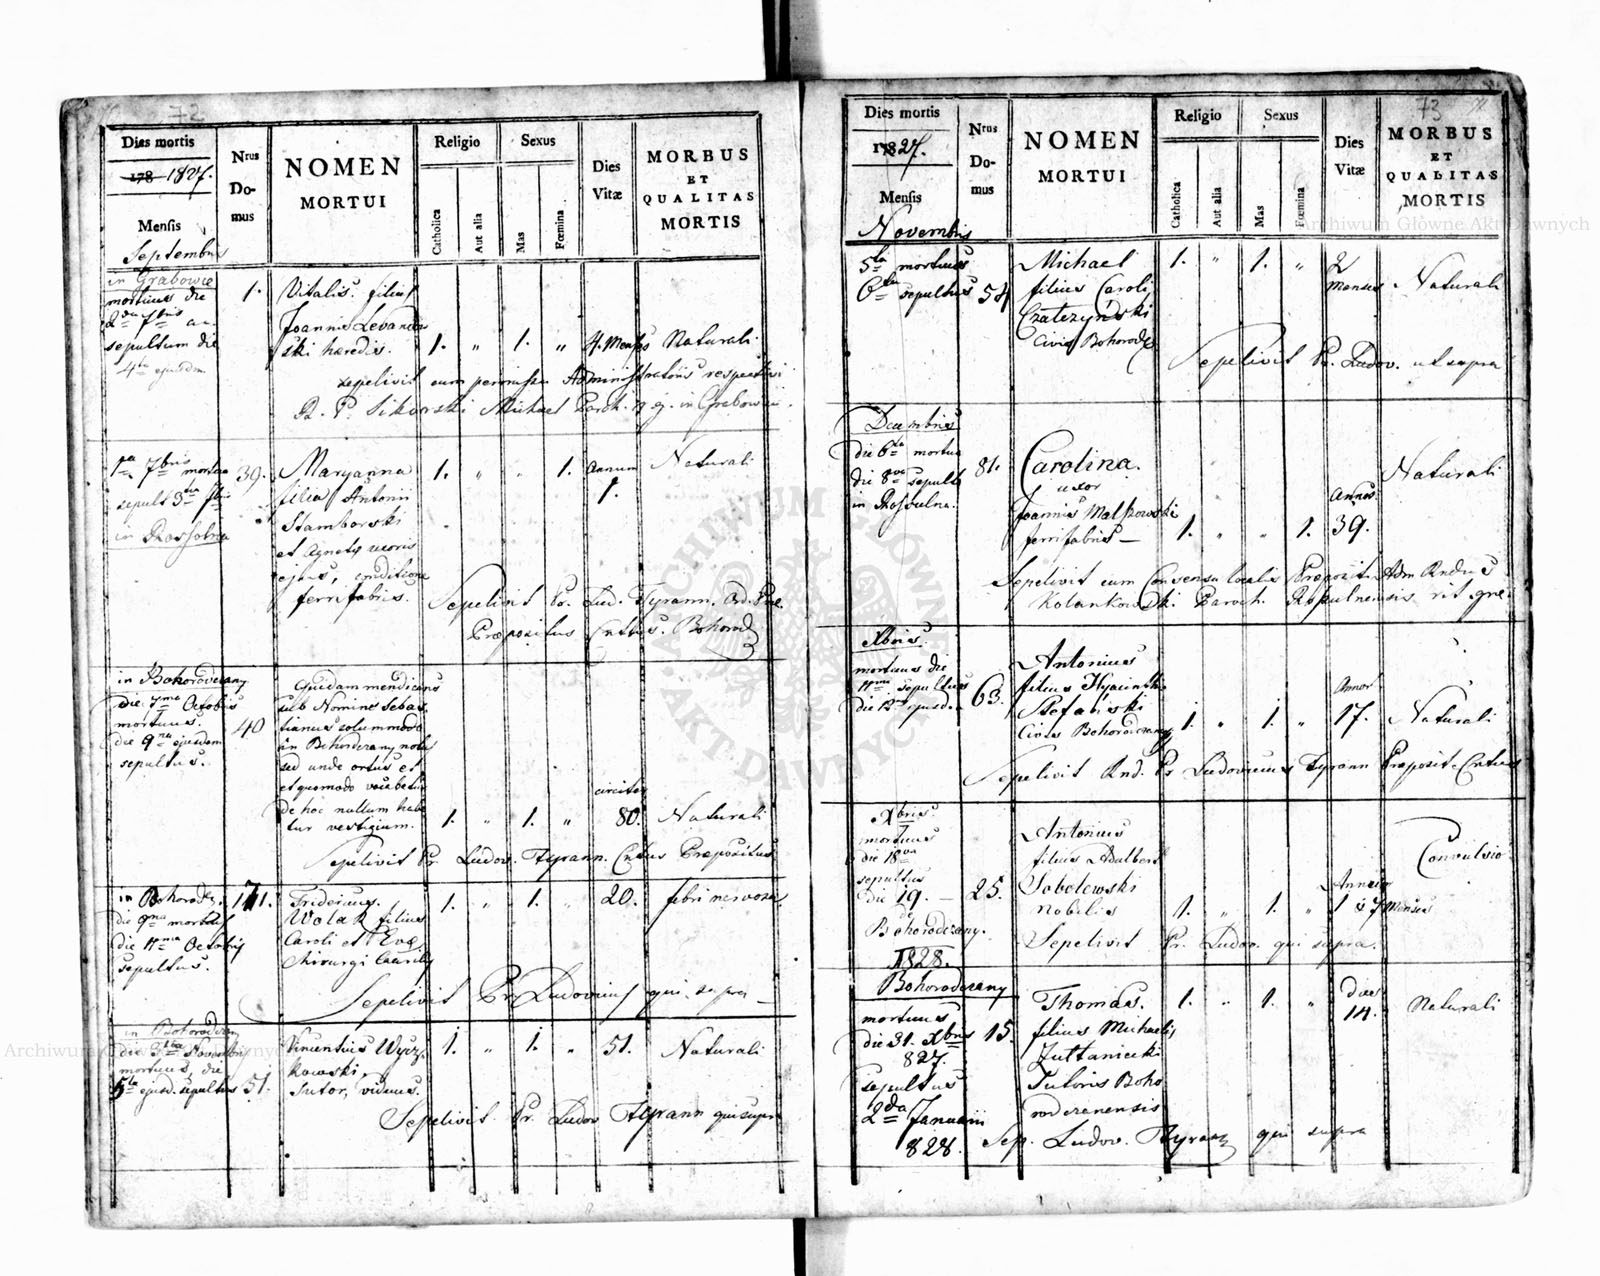 72
Dies mortis
178 1827.
Mensis
Septembris
Nrus
Do-
mus
NOMEN
MORTUI
Religio
Catholica
Aut alia
Sexus
Mas
Fœmina
Dies
Vitæ
MORBUS
ET
QUALITAS
MORTIS
in Grabowce
mortuus die
2da 7bris
sepultum die
4ta ejusdm
1.
Vitalis. filius
Joannis Levandow
ski hæredis.
1. " 1. " 4. Menses Naturali
sepelivit cum permissu Administratoris respectivi
R. P. Sikorski Michael Paroch. in Grabowce.
1ma 7bris mortua
sepult 3tia 7bris
in Rossolna
39.
Maryanna
filia Antonii
Stamborski
et Agnetis uxoris
ejus, conditione
ferrifabris.
1. " " 1. Annum
1.
Naturali
Sepelivit Pr. Lud. Tyrann. Ord. Præ.
Præpositus Cntus. Bohorod
in Bohorodczany
die 7ma Octobris
mortuus.
die 9na ejusdem
sepultus.
40
Quidam mendicans
sub Nomine Sebas
tianus solummodo
in Bohorodczany notus
sed unde ortus et
et quomodo vocabatur
de hoc nullum habe
tur vestigium.
1. " 1. " circiter
80. Naturali
Sepelivit Pr. Ludov. Tyrann. Cntus Præpositus
in Bohorodcz.
die 9na mortuus
die 11ma Octobris
sepultus.
171.
Fridericus.
Wolak filius
Caroli et Evæ.
Chirurgi
1. " 1. " 20. febri nervosa
Sepelivit Pr. Ludovicus qui supra
in Bohorodczan
die 3tia Novembris
mortuus, die
5ta ejusd. sepultus
51.
Vincentius Wycz
kowski,
Sutor, viduus.
1. " 1. " 51. Naturali
Sepelivit Pr. Ludov Tyrann qui supra
73
Dies mortis
1827.
Mensis
Novembris
Nrus
Do-
mus
NOMEN
MORTUI
Religio
Catholica
Aut alia
Sexus
Mas
Fœmina
Dies
Vitæ
MORBUS
ET
QUALITAS
MORTIS
5ta mortuus
6ta sepultus
54
Michael
filius Caroli
Czateczynski
Civis Bohorodcz
1. " 1. " 2
Menses Naturali
Sepelivit Pr. Ludov. ut supra
Decembris
die 6ta mortua
die 8va sepulta
in Rossulna.
81.
Carolina.
uxor
Joannis Malkowski
ferrifabris
1. " " 1. Annos
39.
Naturali
Sepelivit cum Consensu localis Præpositi Adm Rndus
Kolankowski Paroch. Rossulnensis
Xbris.
mortuus die
11ma sepultus
die 12ma ejusdem
63.
Antonius
filius Hyacinthi
Stefanski
Civis Bohorodczany
1. " 1. " Annor
17. Naturali
Sepelivit Rnd. Pr Ludovicus Tyrann Præposit Cntus
Xbris.
mortuus
die 18va
sepultus
die 19.
de
Bohorodczany.
25.
Antonius
filius Adalberti
Sobolewski
Nobilis
1. " 1. "
1 & 7 Menses
Convulsio
Sepelivit Pr. Ludov. qui supra.
1828.
Bohorodczany
mortuus
die 31. Xbris
827.
sepultus
2da Januarii
828.
15.
Thomas.
filius Michaelis
Zultaniecki
Sutoris Boho
rodczanensis
1. " 1. " dies
14. Naturali
Sep. Ludov. Tyrann qui supra
Archiwum Główne Akt Dawnych
Archiwum Główne Akt Dawnych
ARCHIWUM GŁÓWNE AKT DAWNYCH